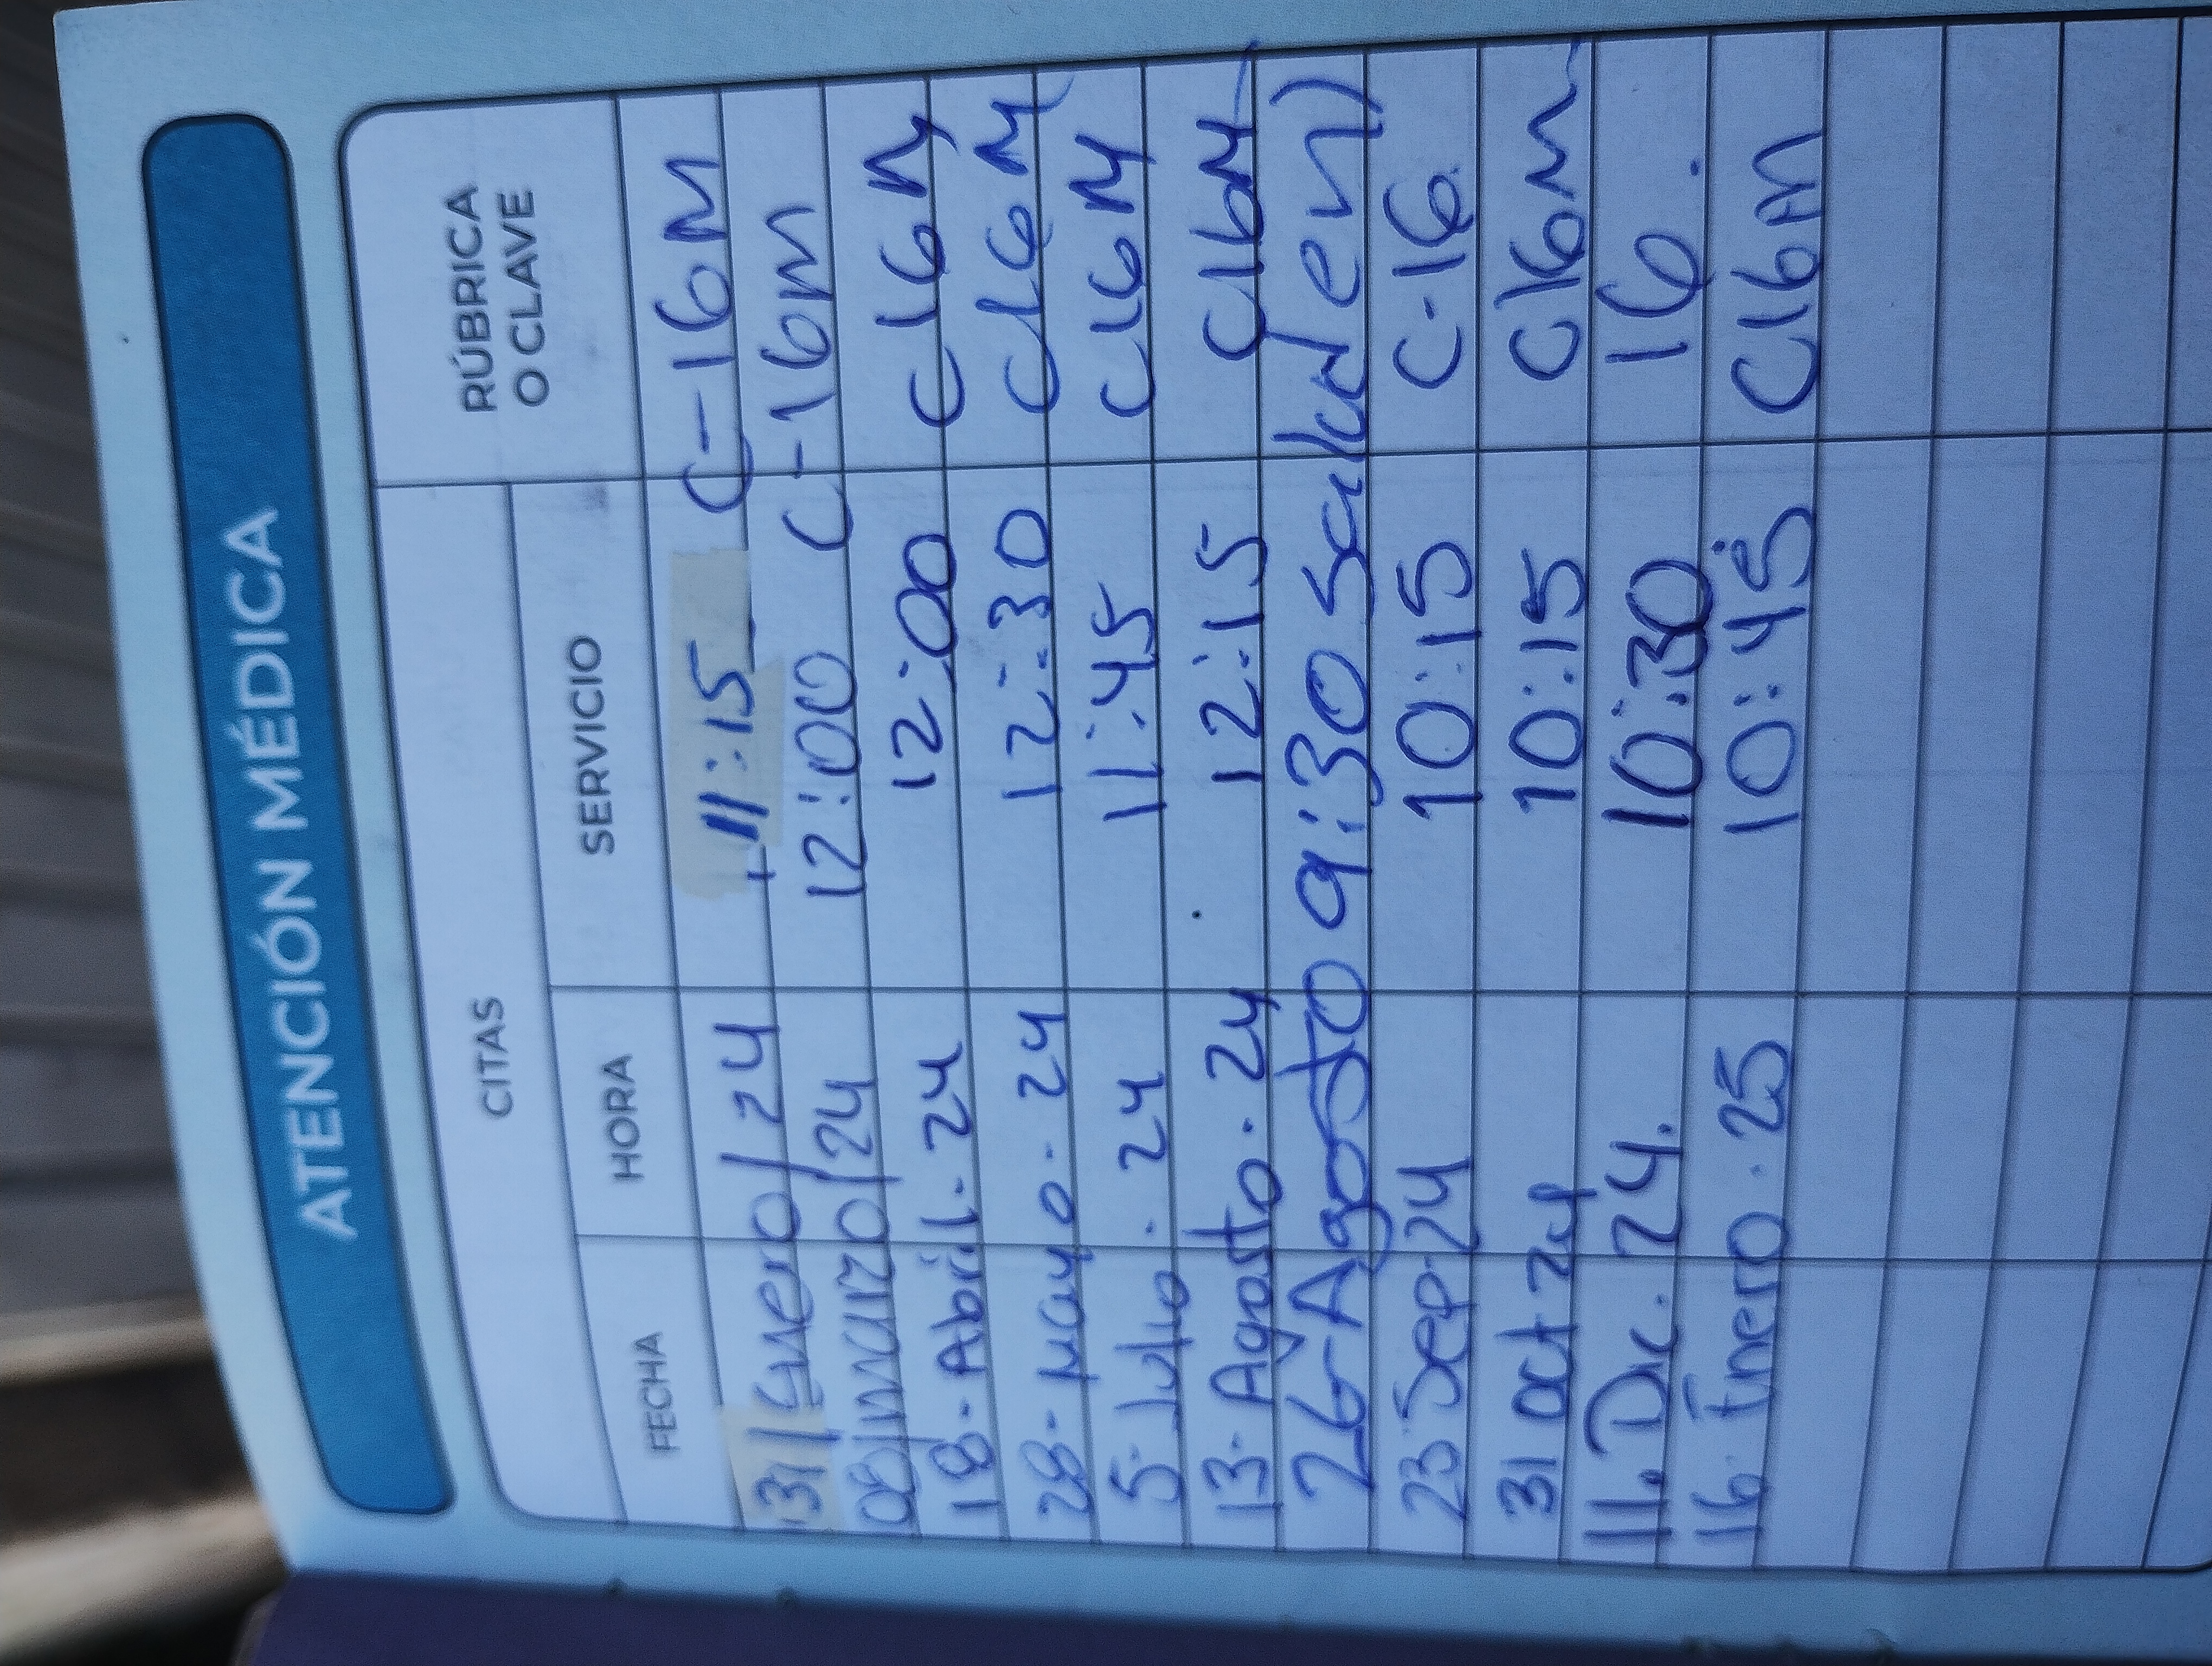 ATENCIÓN MÉDICA
CITAS
RÚBRICA
O CLAVE
FECHA HORA SERVICIO
31/Enero/24 11:15 C-16M
08/marzo/24 12:00 C-16m
18-Abril-24 12:00 C16M
28-mayo-24 12:30 C16M
5-Julio-24 11:45 C16M
13-Agosto-24 12:15 C16M
26-Agosto 9:30 Salud en)
23 Sep 24 10:15 C-16
31 oct 24 10:15 C16m
11. Dic. 24. 10:30 16.
16 Enero. 25 10:45 C16m